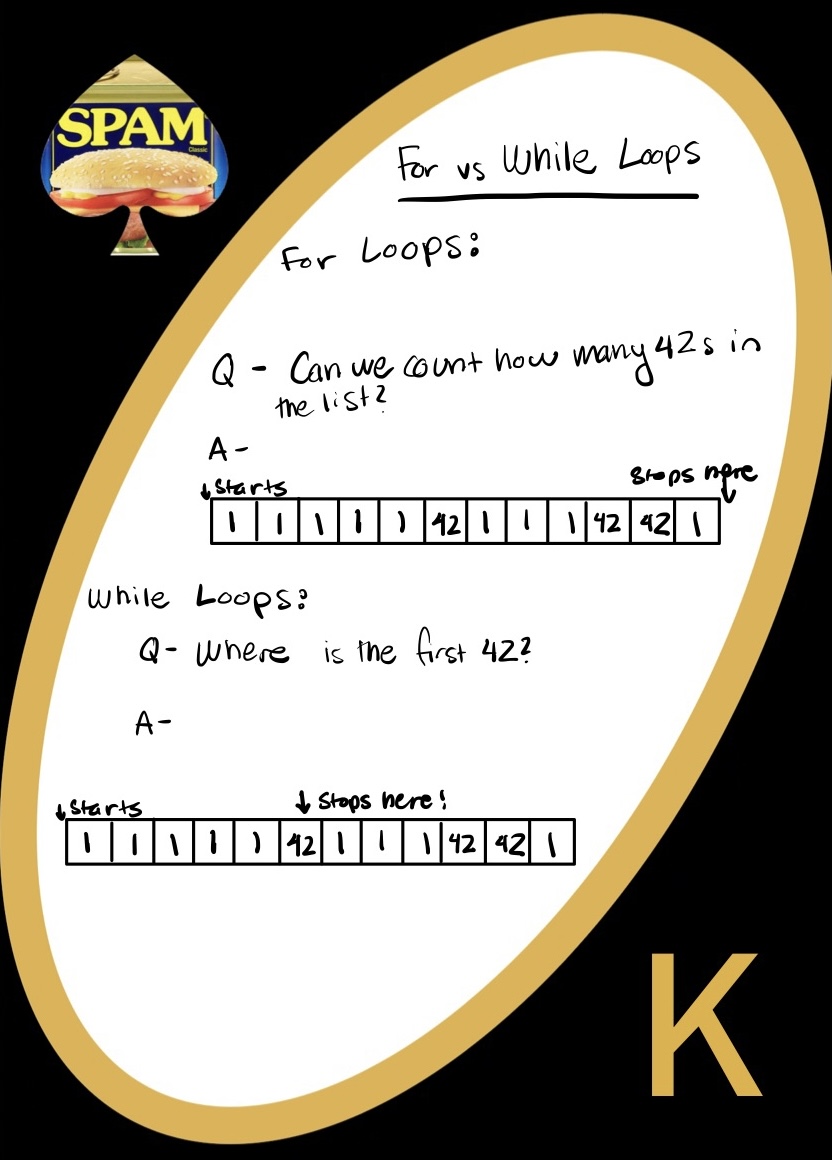 SPAM
Classic
For vs While Loops
For Loops:
Q - Can we count how many 42s in
the list?
A-
↓Starts
Stops here
↓
1 1 1 1 1 42 1 1 1 42 42 1
While Loops:
Q- Where is the first 42?
A-
↓Starts ↓ Stops here!
1 1 1 1 1 42 1 1 1 42 42 1
K